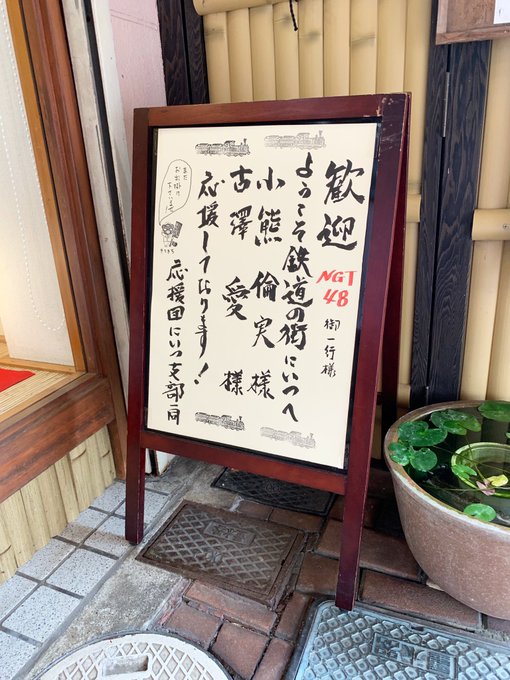 歓迎 NGT48 御一行様
ようこそ鉄道の街にいつへ
小熊倫実様
古澤愛様
応援しております！
応援団にいつ支部一同
また
お出掛け
下さいませ